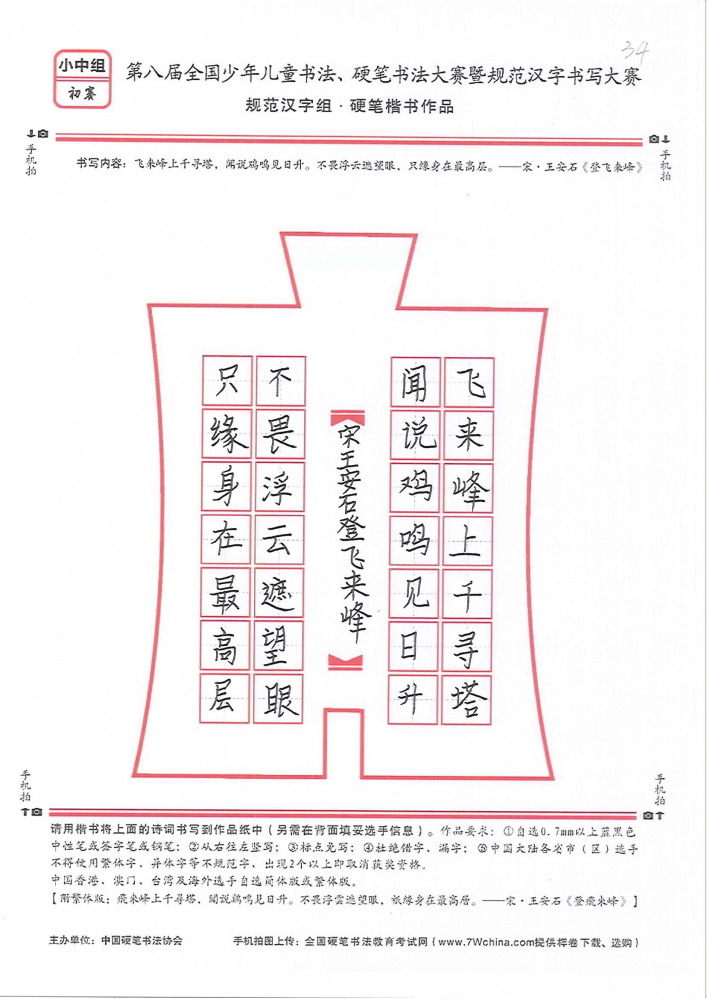 34
小中组
初赛
第八届全国少年儿童书法、硬笔书法大赛暨规范汉字书写大赛
规范汉字组·硬笔楷书作品
手机拍
手机拍
书写内容：飞来峰上千寻塔，闻说鸡鸣见日升。不畏浮云遮望眼，只缘身在最高层。——宋·王安石《登飞来峰》
飞来峰上千寻塔
闻说鸡鸣见日升
宋王安石登飞来峰
不畏浮云遮望眼
只缘身在最高层
手机拍
手机拍
请用楷书将上面的诗词书写到作品纸中（另需在背面填妥选手信息）。作品要求：①自选0.7mm以上蓝黑色
中性笔或签字笔或钢笔；②从右往左竖写；③标点免写；④杜绝错字、漏字；⑤中国大陆各省市（区）选手
不得使用繁体字，异体字等不规范字，出现2个以上即取消获奖资格。
中国香港、澳门、台湾及海外选手自选简体版或繁体版。
【附繁体版：飛來峰上千尋塔，聞說鷄鳴見日升。不畏浮雲遮望眼，祇緣身在最高層。——宋·王安石《登飛來峰》】
主办单位：中国硬笔书法协会
手机拍图上传：全国硬笔书法教育考试网（www.7Wchina.com提供样卷下载、选购）